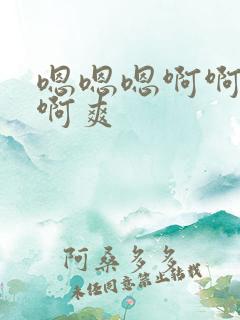 嗯嗯嗯啊啊
啊爽
阿桑多多
未经同意禁止转载